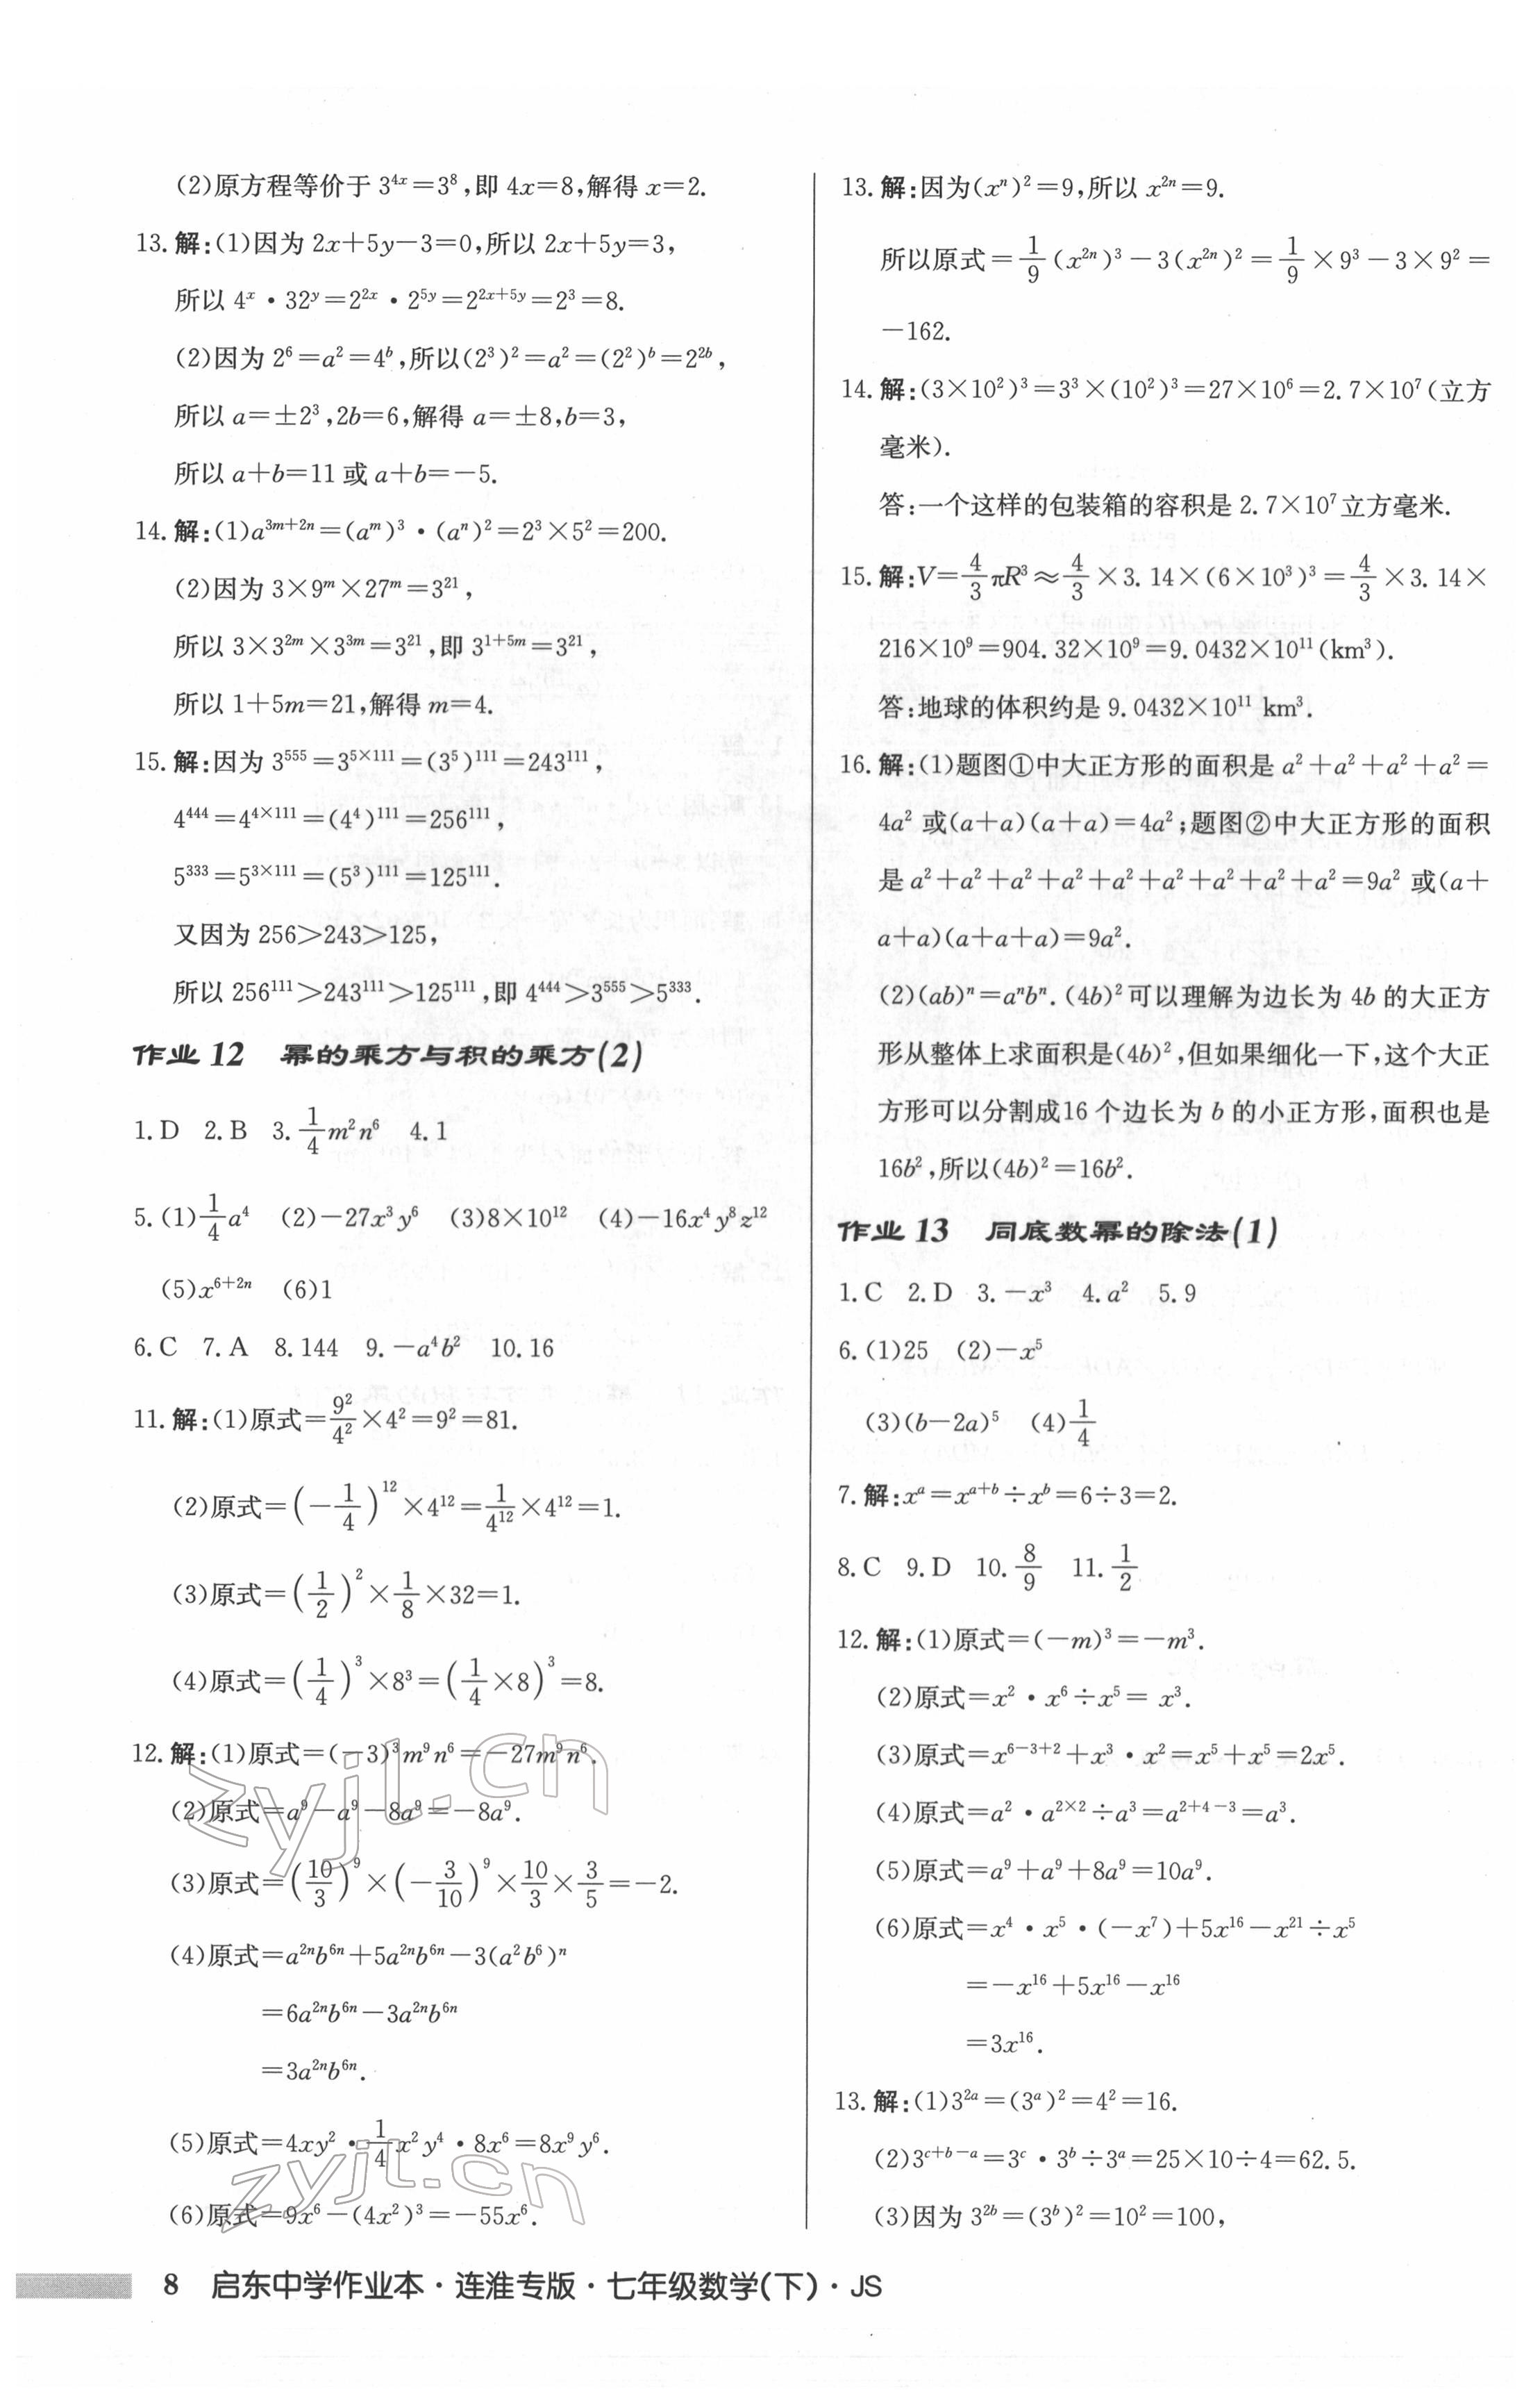 (2)原方程等价于 3^{4x}=3^8,即 4x=8,解得 x=2.
13. 解:(1)因为 2x+5y-3=0,所以 2x+5y=3,
所以 4^x·32^y=2^{2x}·2^{5y}=2^{2x+5y}=2^3=8.
(2)因为 2^6=a^2=4^b,所以(2^3)^2=a^2=(2^2)^b=2^{2b},
所以 a=±2^3,2b=6,解得 a=±8,b=3,
所以 a+b=11 或 a+b=-5.
14. 解:(1)a^{3m+2n}=(a^m)^3·(a^n)^2=2^3×5^2=200.
(2)因为 3×9^m×27^m=3^{21},
所以 3×3^{2m}×3^{3m}=3^{21},即 3^{1+5m}=3^{21},
所以 1+5m=21,解得 m=4.
15. 解:因为 3^{555}=3^{5×111}=(3^5)^{111}=243^{111},
4^{444}=4^{4×111}=(4^4)^{111}=256^{111},
5^{333}=5^{3×111}=(5^3)^{111}=125^{111}.
又因为 256>243>125,
所以 256^{111}>243^{111}>125^{111},即 4^{444}>3^{555}>5^{333}.
作业 12 幂的乘方与积的乘方(2)
1. D 2. B 3. \frac{1}{4}m^2n^6 4. 1
5. (1)\frac{1}{4}a^4 (2)-27x^3y^6 (3)8×10^{12} (4)-16x^4y^8z^{12}
(5)x^{6+2n} (6)1
6. C 7. A 8. 144 9. -a^4b^2 10. 16
11. 解:(1)原式=\frac{9^2}{4^2}×4^2=9^2=81.
(2)原式=(-\frac{1}{4})^{12}×4^{12}=\frac{1}{4^{12}}×4^{12}=1.
(3)原式=(\frac{1}{2})^2×\frac{1}{8}×32=1.
(4)原式=(\frac{1}{4})^3×8^3=(\frac{1}{4}×8)^3=8.
12. 解:(1)原式=(-3)^3m^9n^6=-27m^9n^6.
(2)原式=a^9-a^9-8a^9=-8a^9.
(3)原式=(\frac{10}{3})^9×(-\frac{3}{10})^9×\frac{10}{3}×\frac{3}{5}=-2.
(4)原式=a^{2n}b^{6n}+5a^{2n}b^{6n}-3(a^2b^6)^n
=6a^{2n}b^{6n}-3a^{2n}b^{6n}
=3a^{2n}b^{6n}.
(5)原式=4xy^2·\frac{1}{4}x^2y^4·8x^6=8x^9y^6.
(6)原式=9x^6-(4x^2)^3=-55x^6.
13. 解:因为(x^n)^2=9,所以 x^{2n}=9.
所以原式=\frac{1}{9}(x^{2n})^3-3(x^{2n})^2=\frac{1}{9}×9^3-3×9^2=
-162.
14. 解:(3×10^2)^3=3^3×(10^2)^3=27×10^6=2.7×10^7(立方
毫米).
答:一个这样的包装箱的容积是 2.7×10^7 立方毫米.
15. 解:V=\frac{4}{3}πR^3≈\frac{4}{3}×3.14×(6×10^3)^3=\frac{4}{3}×3.14×
216×10^9=904.32×10^9=9.0432×10^{11}(km^3).
答:地球的体积约是 9.0432×10^{11} km^3.
16. 解:(1)题图①中大正方形的面积是 a^2+a^2+a^2+a^2=
4a^2 或(a+a)(a+a)=4a^2;题图②中大正方形的面积
是 a^2+a^2+a^2+a^2+a^2+a^2+a^2+a^2+a^2=9a^2 或(a+
a+a)(a+a+a)=9a^2.
(2)(ab)^n=a^nb^n.(4b)^2可以理解为边长为 4b 的大正方
形从整体上求面积是(4b)^2,但如果细化一下,这个大正
方形可以分割成16 个边长为 b 的小正方形,面积也是
16b^2,所以(4b)^2=16b^2.
作业 13 同底数幂的除法(1)
1. C 2. D 3. -x^3 4. a^2 5. 9
6. (1)25 (2)-x^5
(3)(b-2a)^5 (4)\frac{1}{4}
7. 解:x^a=x^{a+b}÷x^b=6÷3=2.
8. C 9. D 10. \frac{8}{9} 11. \frac{1}{2}
12. 解:(1)原式=(-m)^3=-m^3.
(2)原式=x^2·x^6÷x^5= x^3.
(3)原式=x^{6-3+2}+x^3·x^2=x^5+x^5=2x^5.
(4)原式=a^2·a^{2×2}÷a^3=a^{2+4-3}=a^3.
(5)原式=a^9+a^9+8a^9=10a^9.
(6)原式=x^4·x^5·(-x^7)+5x^{16}-x^{21}÷x^5
=-x^{16}+5x^{16}-x^{16}
=3x^{16}.
13. 解:(1)3^{2a}=(3^a)^2=4^2=16.
(2)3^{c+b-a}=3^c·3^b÷3^a=25×10÷4=62.5.
(3)因为 3^{2b}=(3^b)^2=10^2=100,
zyjl.cn
zyjl.cn
8 启东中学作业本·连淮专版·七年级数学(下)·JS